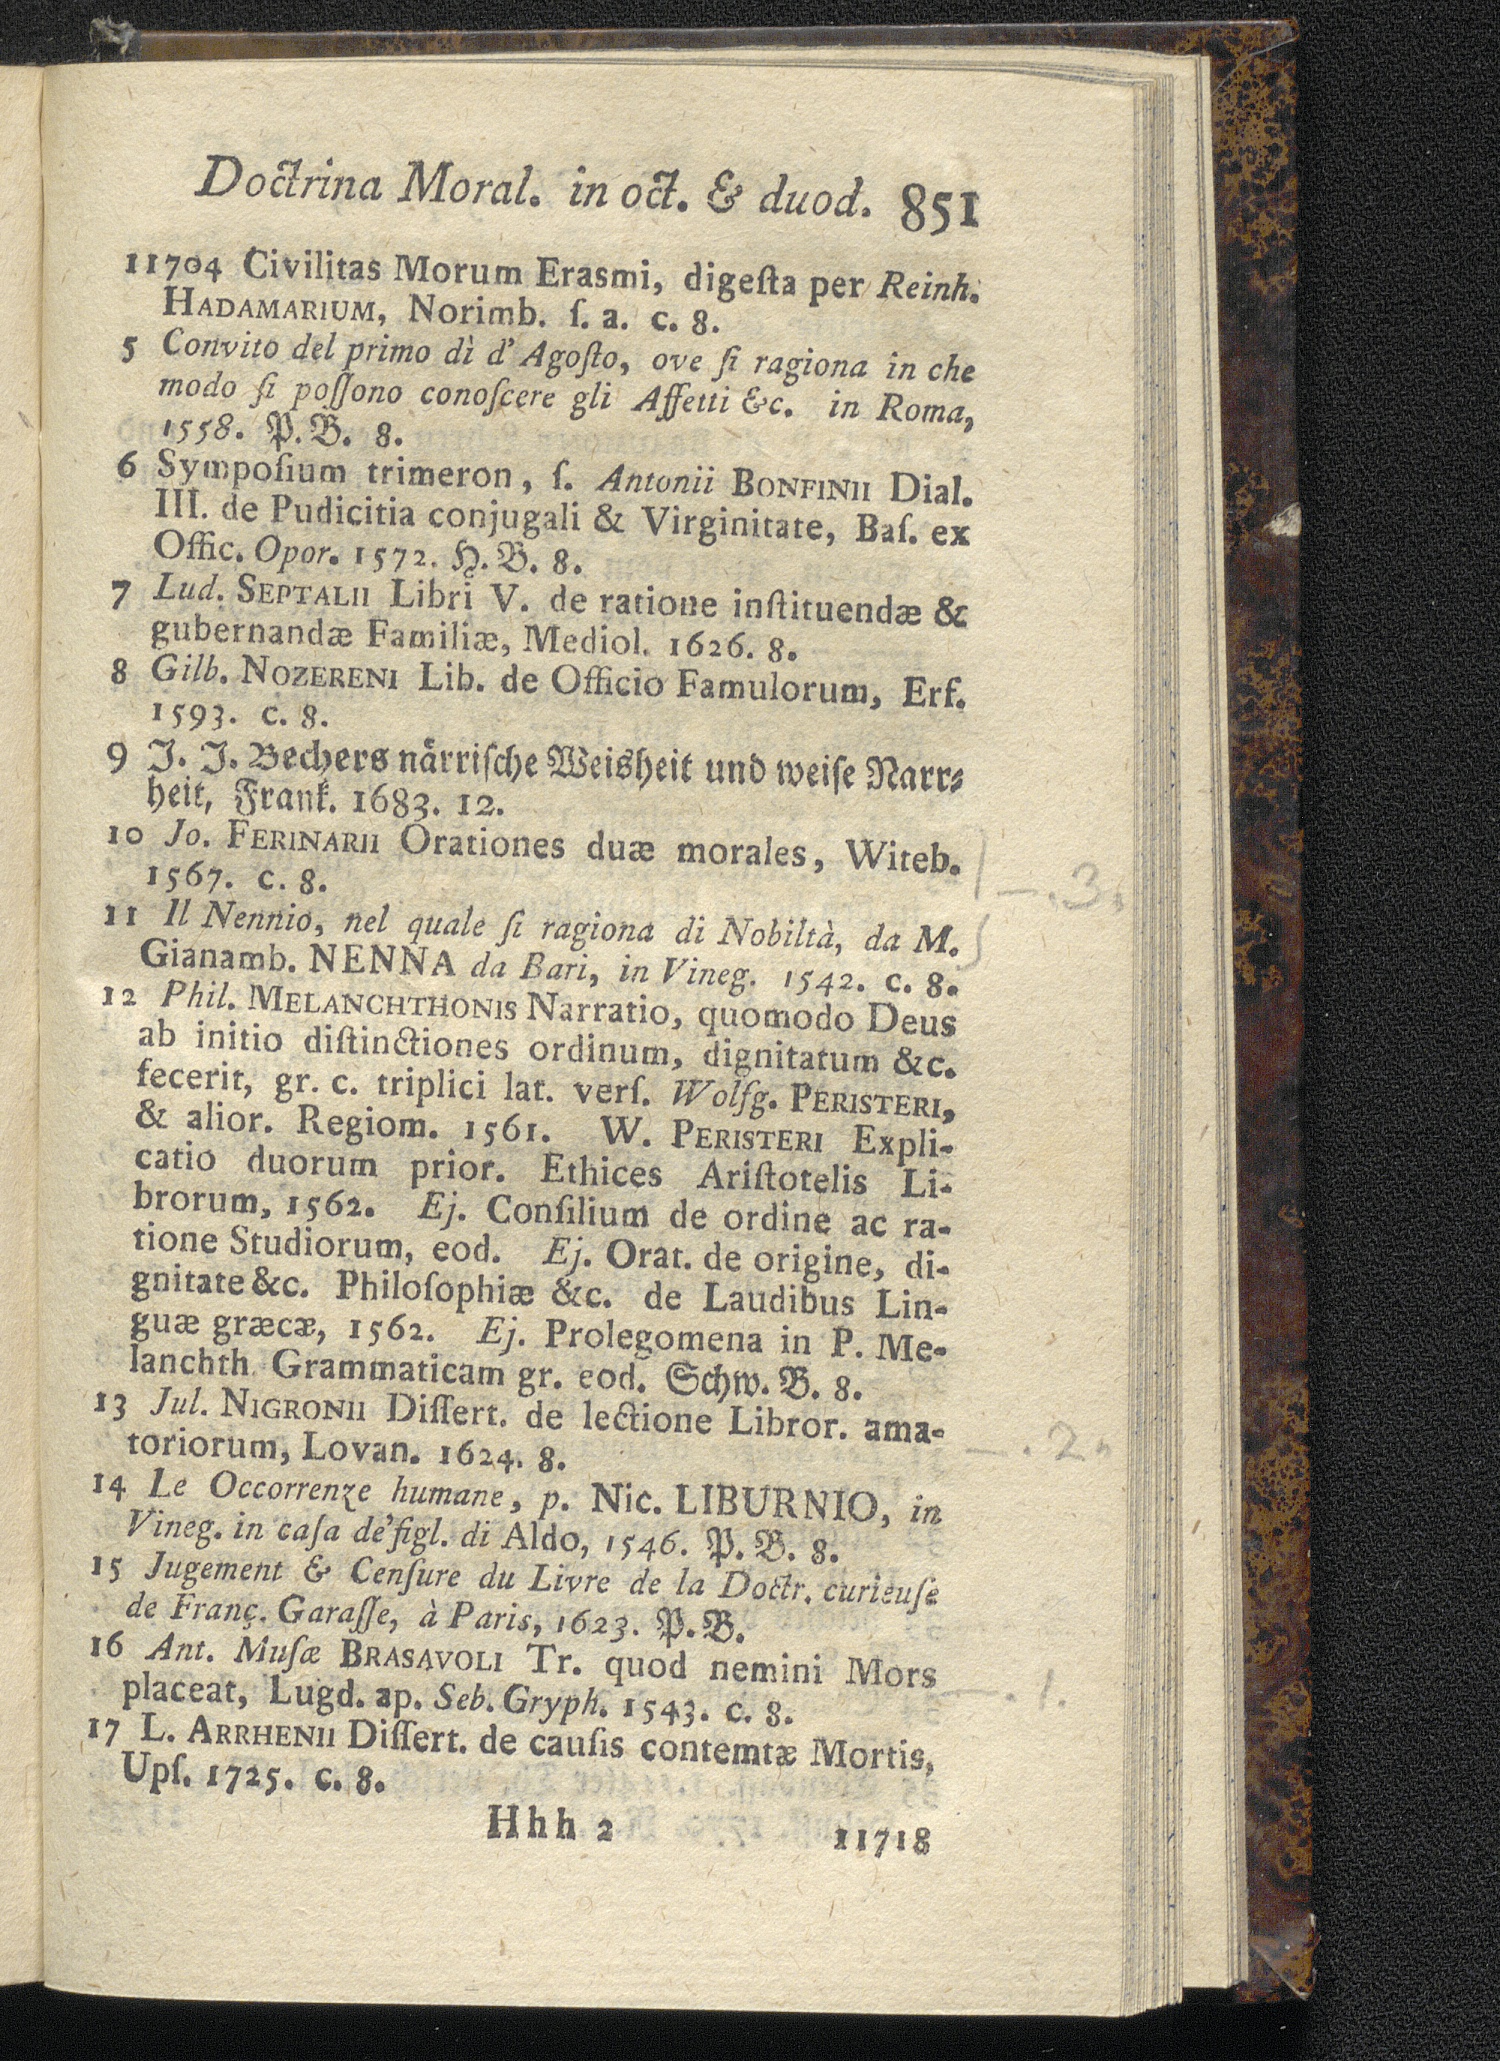 Doctrina Moral. in oct. & duod. 851
11704 Civilitas Morum Erasmi, digeſta per Reinh.
HADAMARIUM, Norimb. ſ. a. c. 8.
5 Convito del primo dì d'Agoſto, ove ſi ragiona in che
modo ſi poſſono conoſcere gli Affetti &c. in Roma,
1558. P. B. 8.
6 Sympoſium trimeron, ſ. Antonii BONFINII Dial.
III. de Pudicitia conjugali & Virginitate, Baſ. ex
Offic. Opor. 1572. H. B. 8.
7 Lud. SEPTALII Libri V. de ratione inſtituendæ &
gubernandæ Familiæ, Mediol. 1626. 8.
8 Gilb. NOZERENI Lib. de Officio Famulorum, Erf.
1593. c. 8.
9 J. J. Bechers närriſche Weisheit und weiſe Narr⸗
heit, Frank. 1683. 12.
10 Jo. FERINARII Orationes duæ morales, Witeb.
1567. c. 8.
—.3.
11 Il Nennio, nel quale ſi ragiona di Nobiltà, da M.
Gianamb. NENNA da Bari, in Vineg. 1542. c. 8.
12 Phil. MELANCHTHONIS Narratio, quomodo Deus
ab initio diſtinctiones ordinum, dignitatum &c.
fecerit, gr. c. triplici lat. verſ. Wolfg. PERISTERI,
& alior. Regiom. 1561. W. PERISTERI Expli-
catio duorum prior. Ethices Ariſtotelis Li-
brorum, 1562. Ej. Conſilium de ordine ac ra-
tione Studiorum, eod. Ej. Orat. de origine, di-
gnitate &c. Philoſophiæ &c. de Laudibus Lin-
guæ græcæ, 1562. Ej. Prolegomena in P. Me-
lanchth. Grammaticam gr. eod. Schw. B. 8.
13 Jul. NIGRONII Diſſert. de lectione Libror. ama-
toriorum, Lovan. 1624. 8.
—.2.
14 Le Occorrenze humane, p. Nic. LIBURNIO, in
Vineg. in caſa de'figl. di Aldo, 1546. P. B. 8.
15 Jugement & Cenſure du Livre de la Doctr. curieuſe
de Franç. Garaſſe, à Paris, 1623. P. B.
16 Ant. Muſæ BRASAVOLI Tr. quod nemini Mors
placeat, Lugd. ap. Seb. Gryph. 1543. c. 8.
—.1.
17 L. ARRHENII Diſſert. de cauſis contemtæ Mortis,
Upſ. 1725. c. 8.
Hhh 2 11718